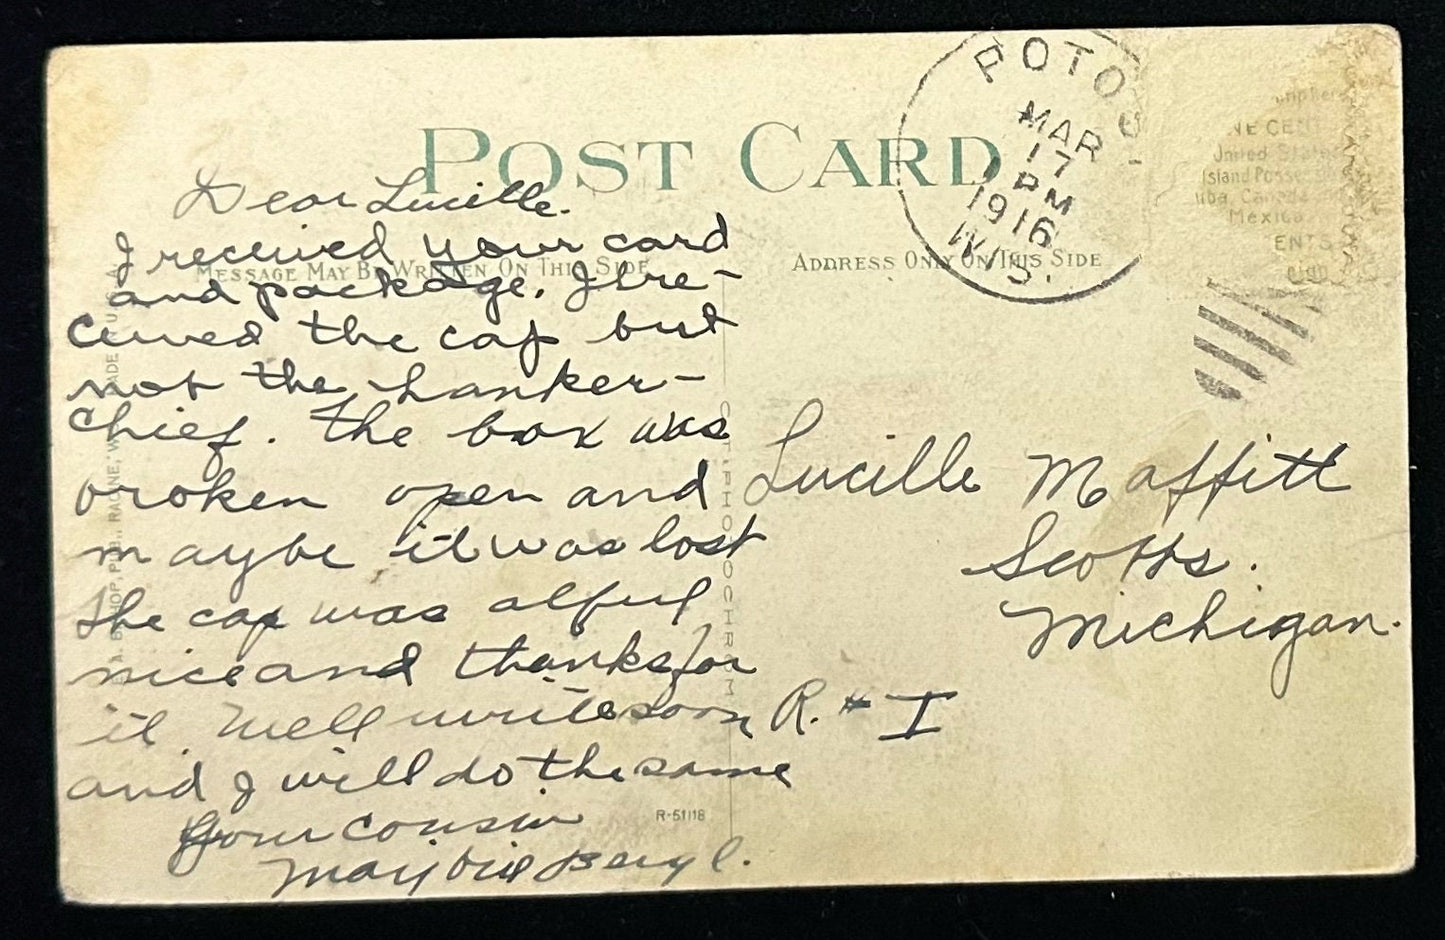 POST CARD
MESSAGE MAY BE WRITTEN ON THIS SIDE
ADDRESS ONLY ON THIS SIDE
POTOS
MAR
17
PM
1916
WIS.
NE CENT
United States
Island Posse
uba, Canada
Mexico
ENTS
Dear Lucille.
I received your card
and package. I re-
cieved the cap but
not the hanker-
chief. The box was
broken open and
maybe it was lost
the cap was alful
nice and thanks for
it. Well write soon
and I will do the same
Your cousin
Marjorie Beryl.
Lucille Maffitt
Scotts.
Michigan.
R. # I
R-51118